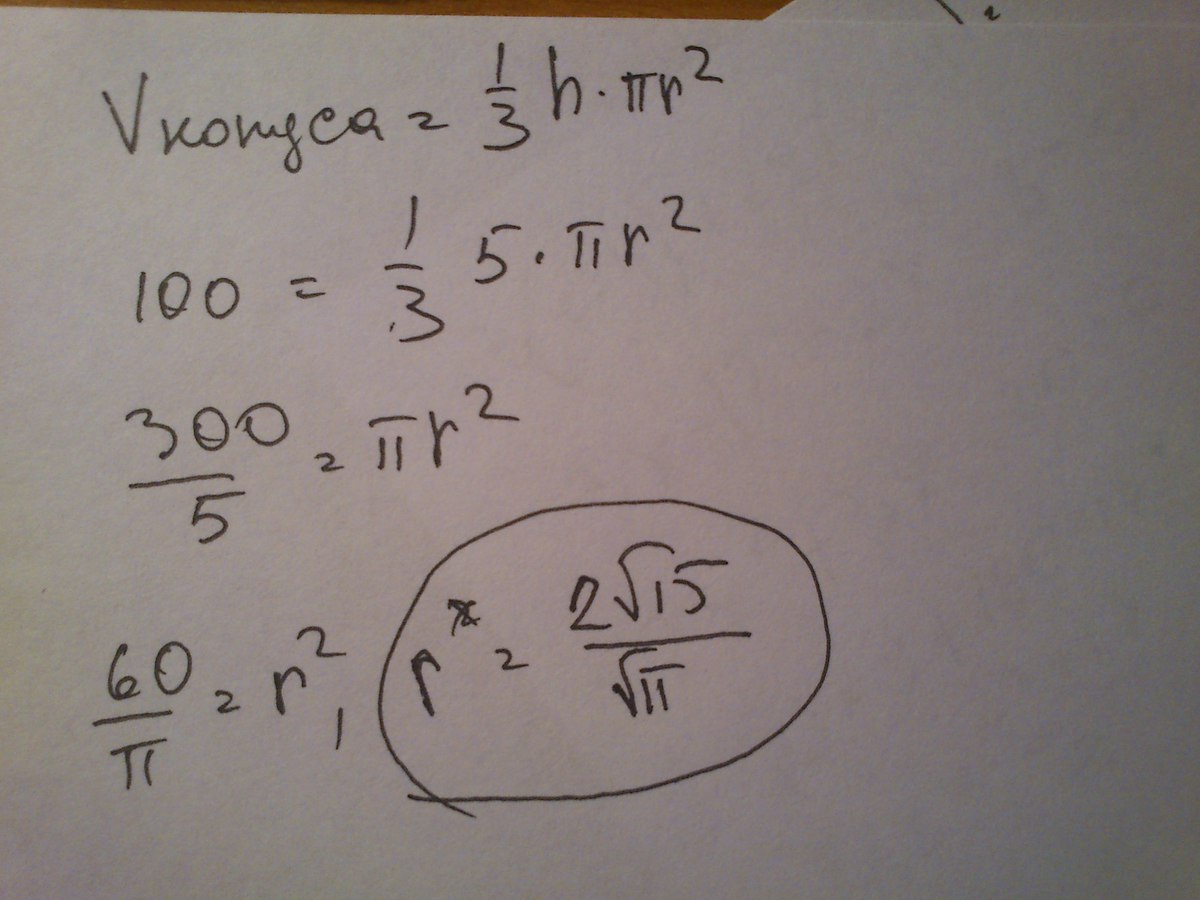 Vконуса = 1/3 h · πr²
100 = 1/3 5 · πr²
300/5 = πr²
60/π = r², r = 2√15/√π